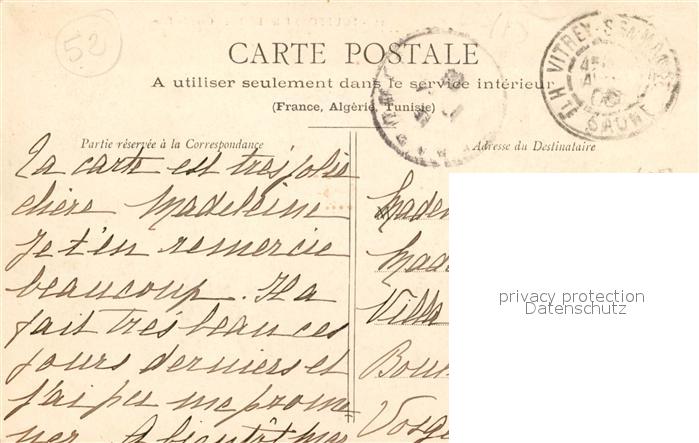 52
CARTE POSTALE
A utiliser seulement dans le service intérieur
(France, Algérie, Tunisie)
VITREY-S-MANCE
HTE SAÔNE
Partie réservée à la Correspondance
Adresse du Destinataire
La carte est très jolie
chère Madeleine
Je t'en remercie
beaucoup. Il a
fait très beau ces
jours derniers et
j'ai pu me prome-
ner. A bientôt mes
Madem
Made
Villa
Bour
Vosge
privacy protection
Datenschutz